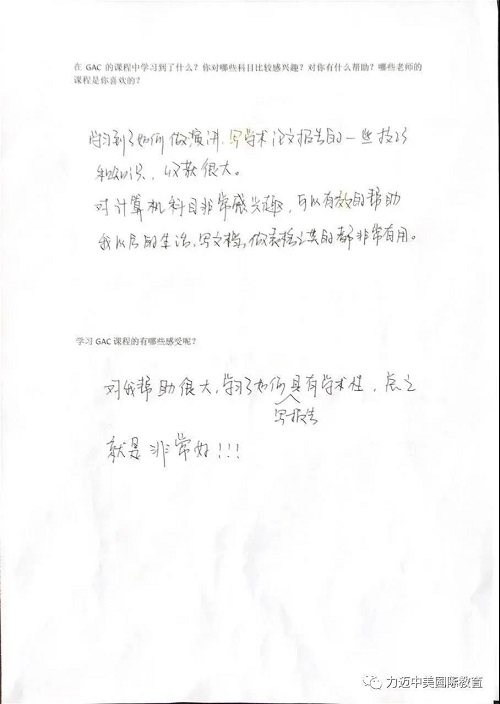 在 GAC 的课程中学习到了什么？你对哪些科目比较感兴趣？对你有什么帮助？哪些老师的
课程是你喜欢的？
学习到了如何做演讲，写学术论文报告的一些技巧
和知识，收获很大。
对计算机科目非常感兴趣，可以有效的帮助
我以后的生活，写文档，做表格之类的都非常有用。
学习 GAC 课程的有哪些感受呢？
对我帮助很大，学习了如何具有学术性，总之
写报告
就是非常好！！！
力迈中美国际教育